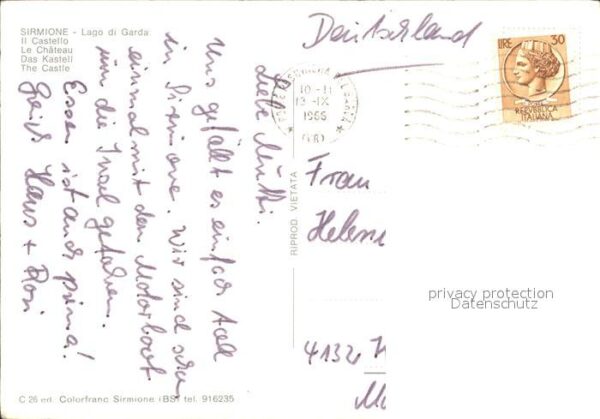 SIRMIONE - Lago di Garda
Il Castello
Le Château
Das Kastell
The Castle
Liebe Mutti.
Uns gefällt es einfach toll
in Sirmione. Wir sind schon
einmal mit dem Motorboot
um die Insel gefahren.
Essen ist auch prima!
Gruß Hans + Rosi
C 26 ed. Colorfranc Sirmione (BS) tel. 916235
RIPROD VIETATA
Deutschland
10-11
13-IX
1965
LIRE 30
REPVBBLICA
ITALIANA
Frau
Helene
privacy protection
Datenschutz
4132